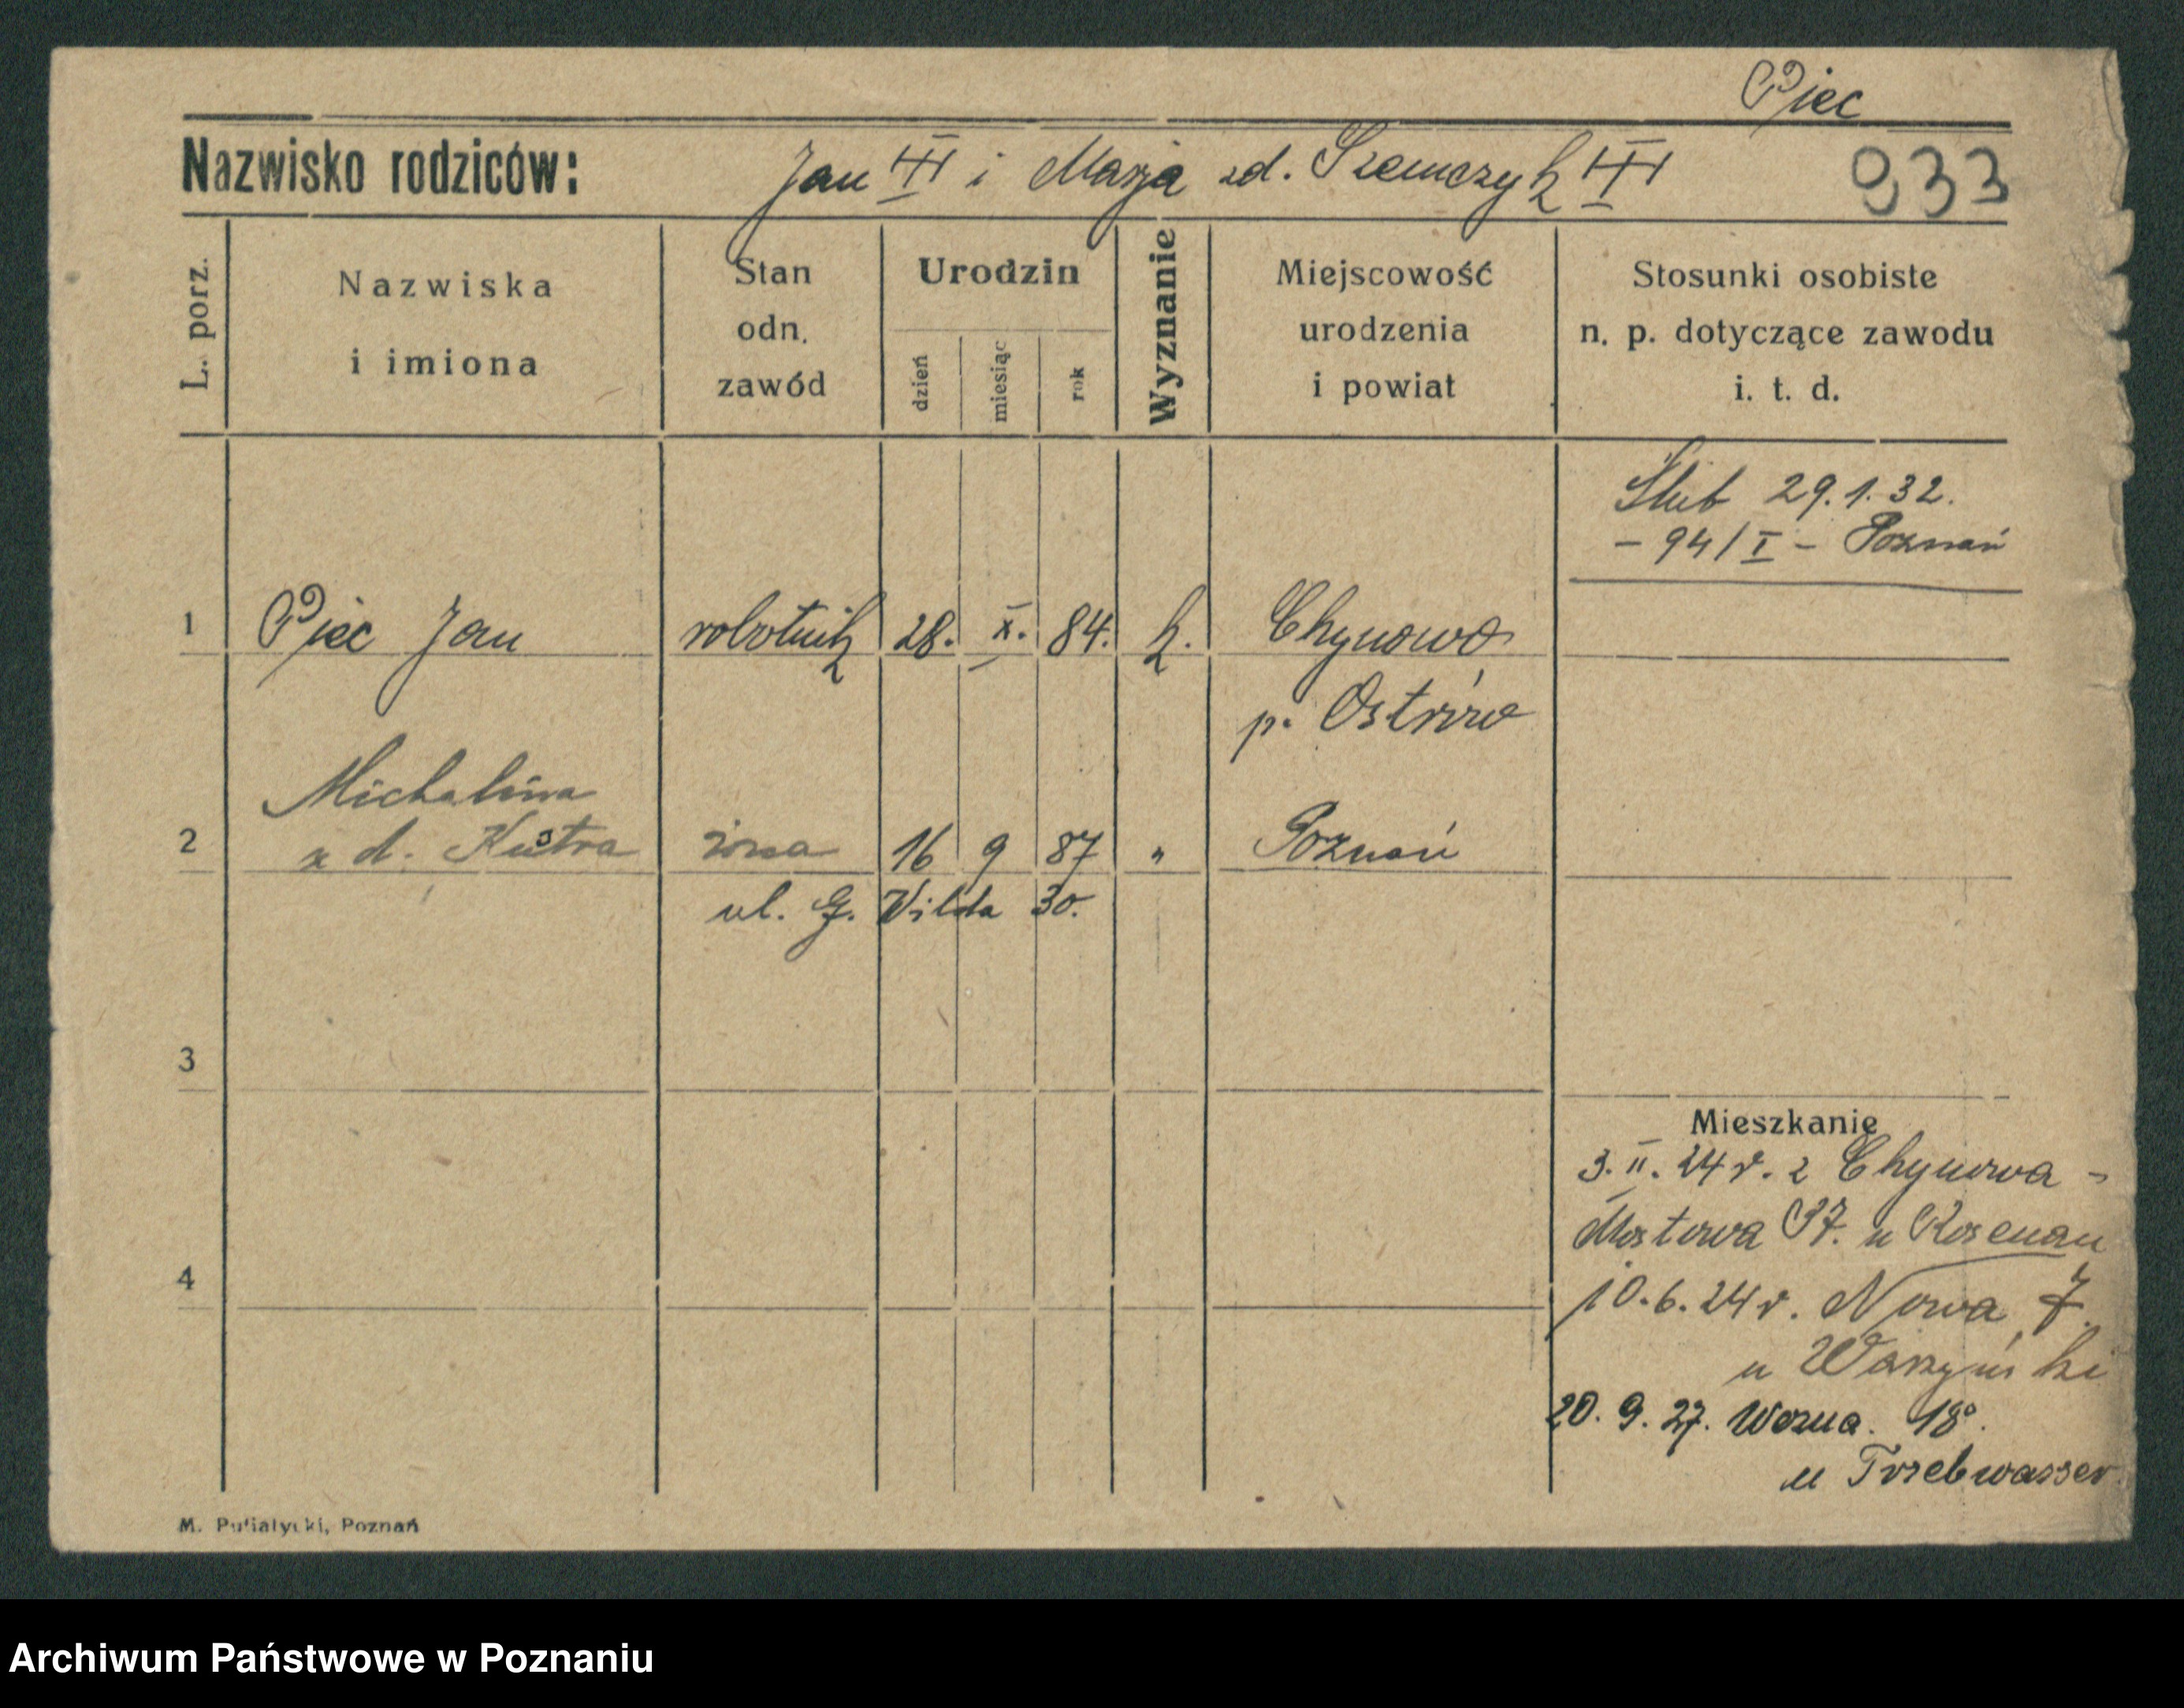 Piec
Nazwisko rodziców: Jan i Marja zd. Szemczyk
933
L. porz.
Nazwiska
i imiona
Stan
odn.
zawód
Urodzin
dzień
miesiąc
rok
Wyznanie
Miejscowość
urodzenia
i powiat
Stosunki osobiste
n. p. dotyczące zawodu
i. t. d.
Ślub 29.1.32.
- 94/I - Poznań
1 Piec Jan robotnik 28. X. 84. k. Chynowo
p. Ostrów
Michalina
2 z d. Kustra żona 16 9 87 " Poznań
ul. G. Wilda 30.
3
Mieszkanie
3. II. 24 r. z Chynowa -
Mostowa 37. u Rosenau
4
10.6.24 r. Nowa 7.
u Waszyński
20. 9. 27. Wozna. 18
u Trzebwasser
M. Putiatycki, Poznań
Archiwum Państwowe w Poznaniu